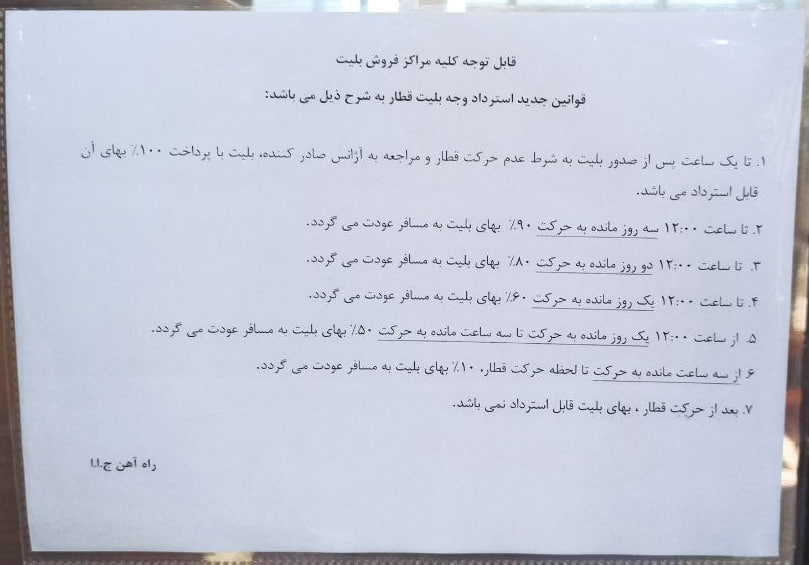 قابل توجه کلیه مراکز فروش بلیت
قوانین جدید استرداد وجه بلیت قطار به شرح ذیل می باشد:
۱. تا یک ساعت پس از صدور بلیت به شرط عدم حرکت قطار و مراجعه به آژانس صادر کننده، بلیت با پرداخت ۱۰۰٪ بهای آن
قابل استرداد می باشد.
۲. تا ساعت ۱۲:۰۰ سه روز مانده به حرکت ۹۰٪ بهای بلیت به مسافر عودت می گردد.
۳. تا ساعت ۱۲:۰۰ دو روز مانده به حرکت ۸۰٪ بهای بلیت به مسافر عودت می گردد.
۴. تا ساعت ۱۲:۰۰ یک روز مانده به حرکت ۶۰٪ بهای بلیت به مسافر عودت می گردد.
۵. از ساعت ۱۲:۰۰ یک روز مانده به حرکت تا سه ساعت مانده به حرکت ۵۰٪ بهای بلیت به مسافر عودت می گردد.
۶. از سه ساعت مانده به حرکت تا لحظه حرکت قطار، ۱۰٪ بهای بلیت به مسافر عودت می گردد.
۷. بعد از حرکت قطار ، بهای بلیت قابل استرداد نمی باشد.
راه آهن ج.ا.ا